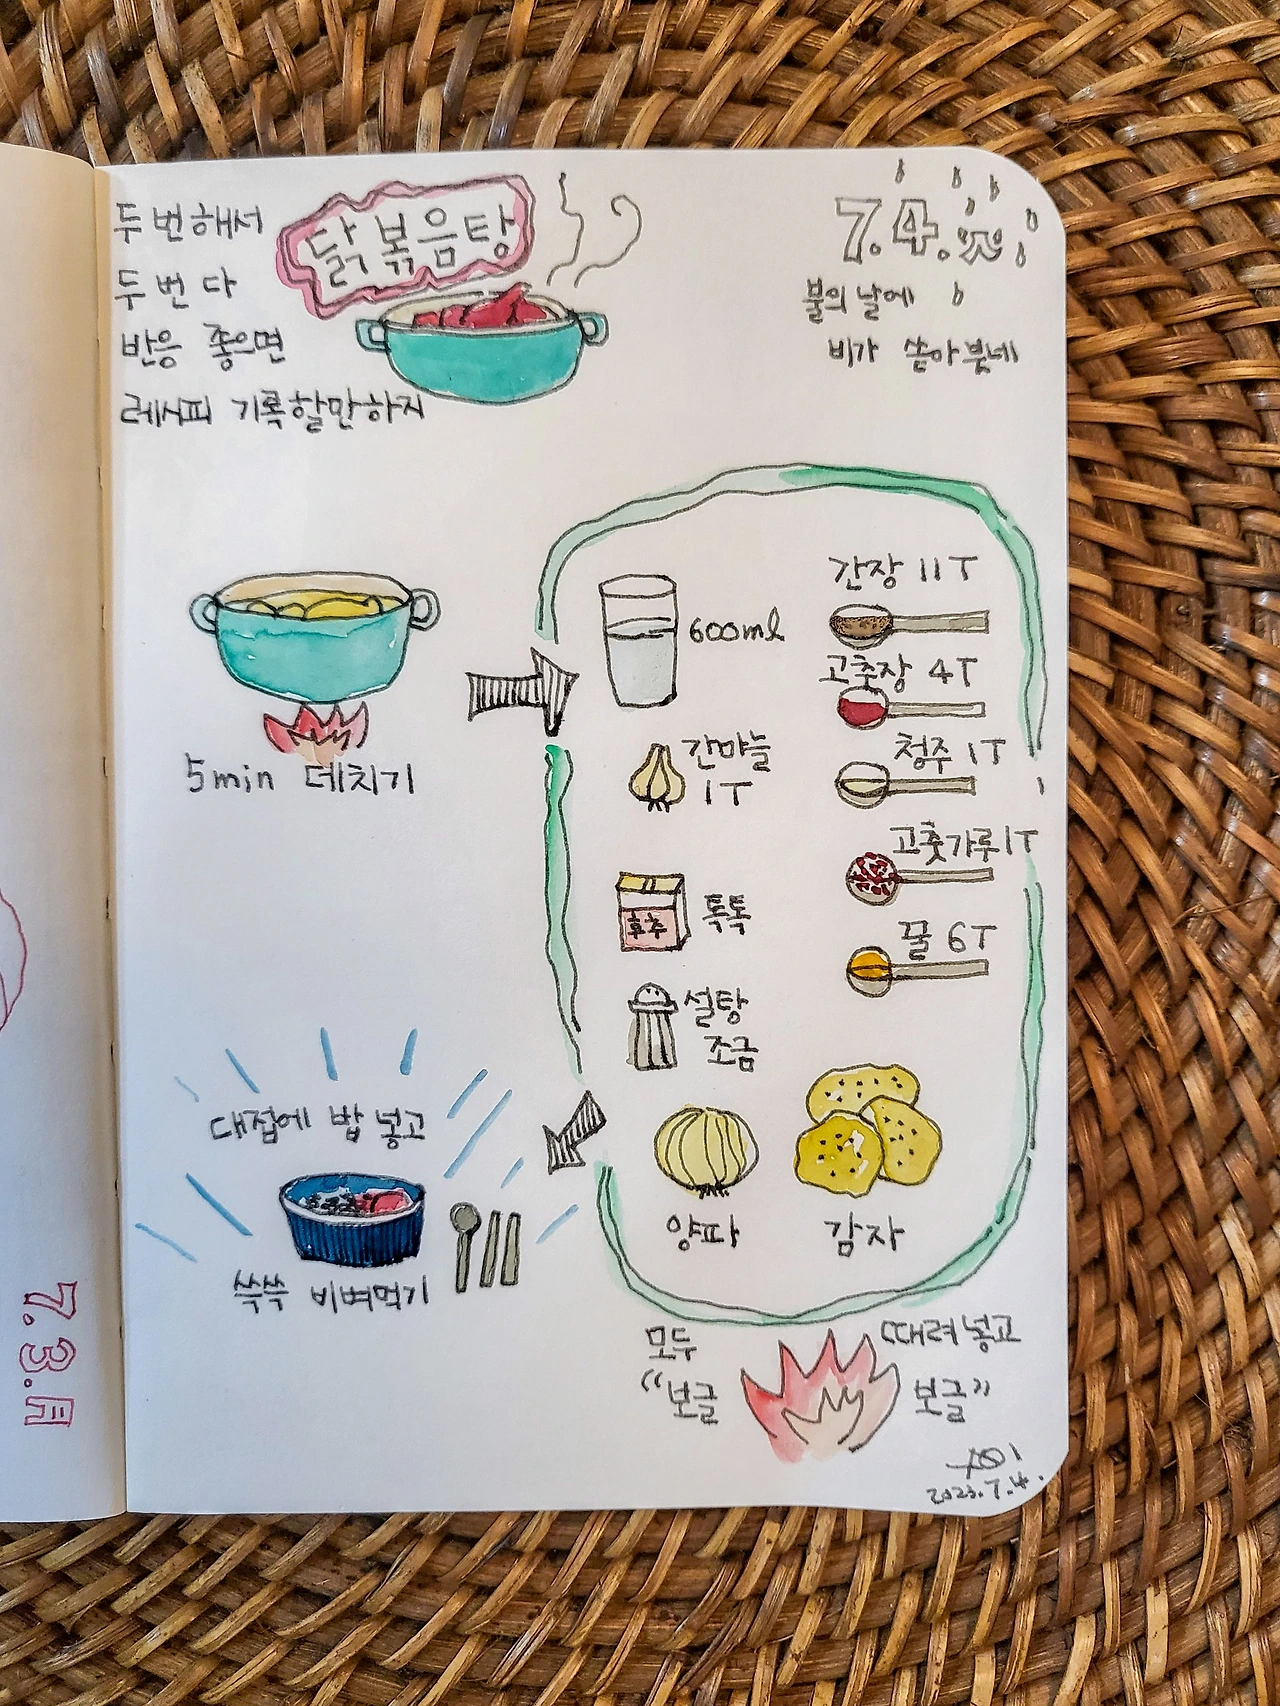 두번해서
두번다
반응 좋으면
레시피 기록할만하지
닭볶음탕
7.4.火
불의 날에
비가 쏟아붓네
5min 데치기
600ml
간마늘
1T
후추
톡톡
설탕
조금
간장 11T
고추장 4T
청주 1T
고춧가루 1T
물 6T
양파
감자
모두 때려넣고
"보글 보글"
대접에 밥 넣고
쓱쓱 비벼먹기
2023.7.4.
7.3.月